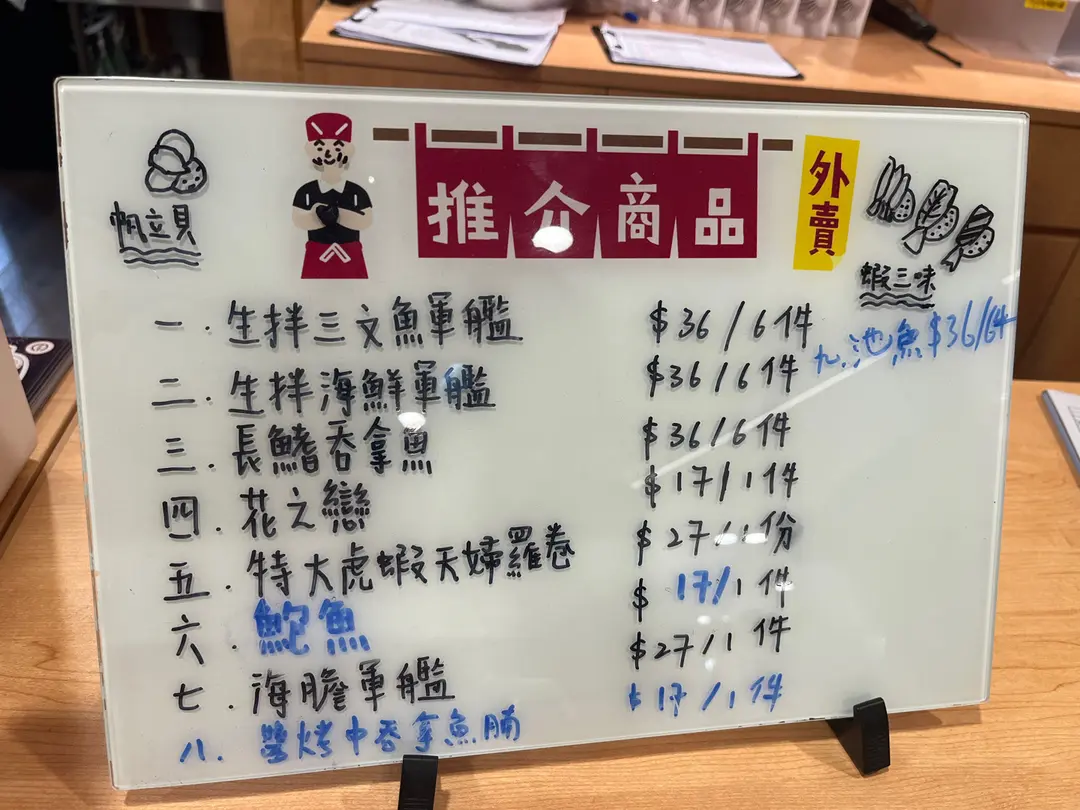 推介商品
外賣
帆立貝
蝦三味
一．生拌三文魚軍艦 $36/6件
二．生拌海鮮軍艦 $36/6件
三．長鰭吞拿魚 $36/6件
四．花之戀 $17/1件
五．特大虎蝦天婦羅卷 $27/1份
六．鮑魚 $17/1件
七．海膽軍艦 $27/1件
八．鹽烤中吞拿魚腩 $17/1件
九．池魚 $36/6件